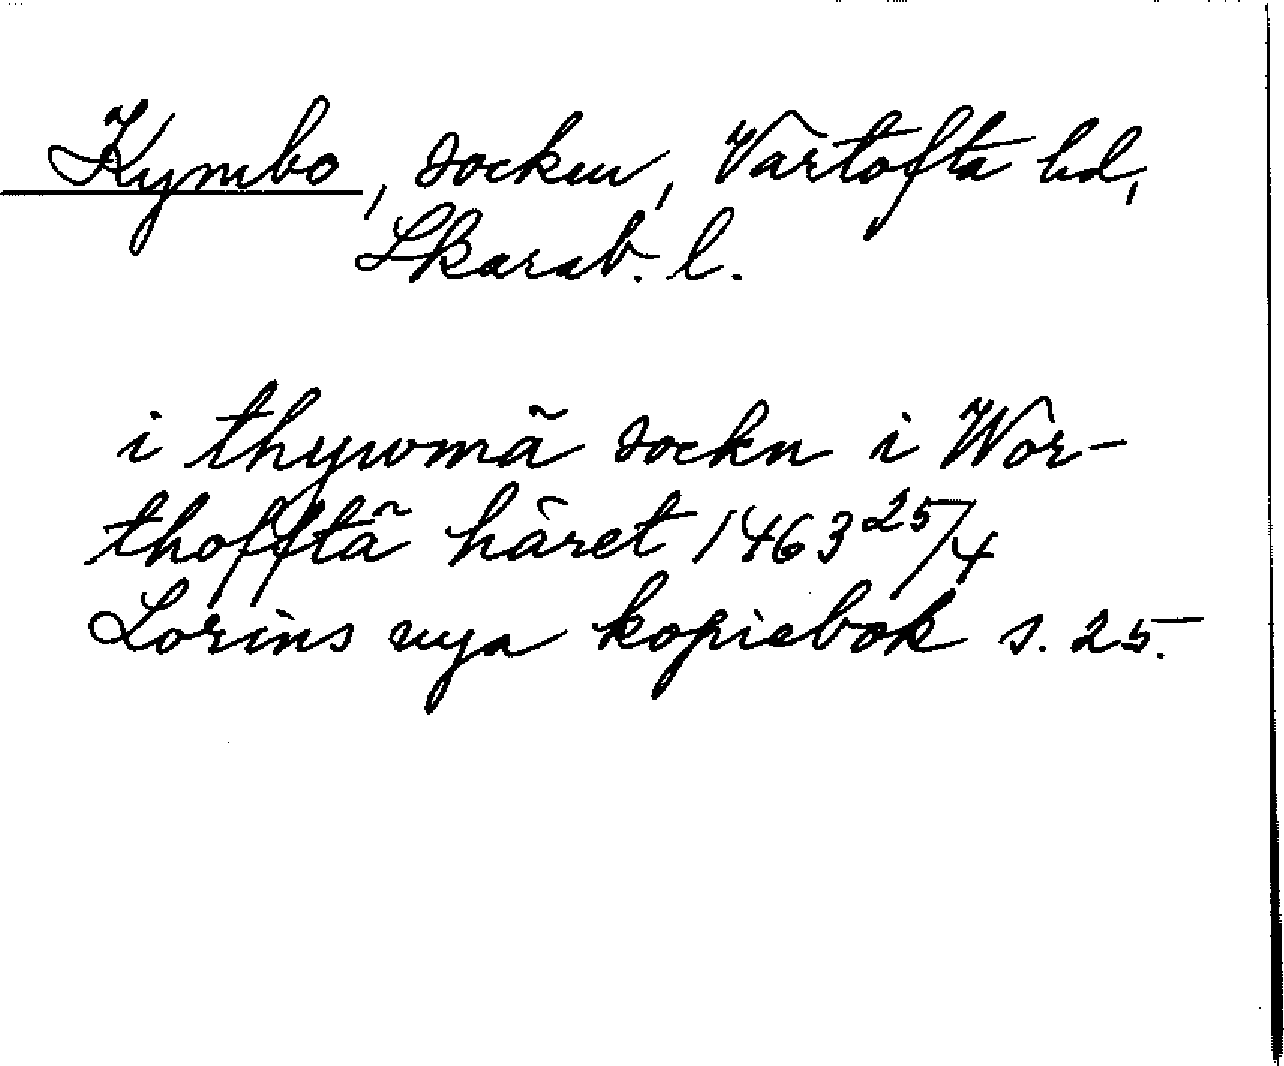 Kymbo, socken, Vartofta hd,
Skarab. l.
i thywmã sockn i Wör-
thofftã häret 1463 25/4
Lorins nya kopiebok s. 25.